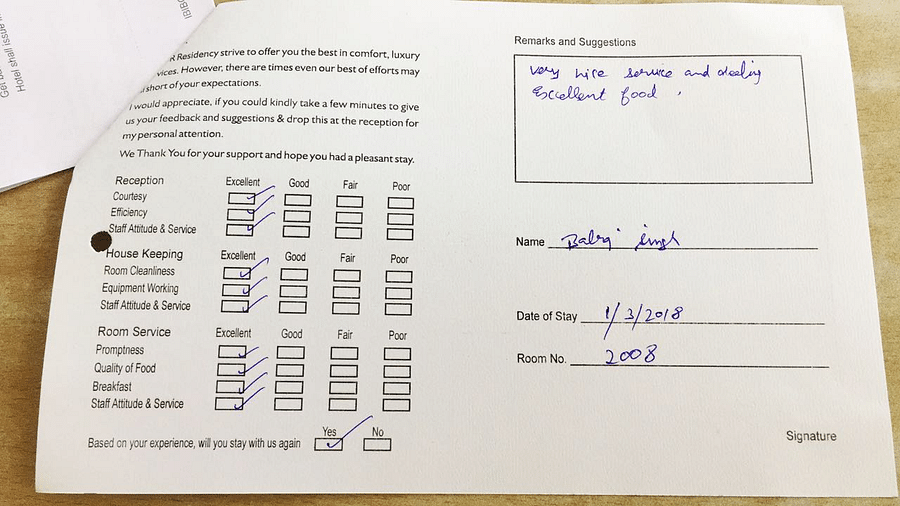 Residency strive to offer you the best in comfort, luxury
However, there are times even our best of efforts may
short of your expectations.
would appreciate, if you could kindly take a few minutes to give
us your feedback and suggestions & drop this at the reception for
my personal attention.
We Thank You for your support and hope you had a pleasant stay.
Reception Excellent Good Fair Poor
Courtesy
Efficiency
Staff Attitude & Service
House Keeping Excellent Good Fair Poor
Room Cleanliness
Equipment Working
Staff Attitude & Service
Room Service Excellent Good Fair Poor
Promptness
Quality of Food
Breakfast
Staff Attitude & Service
Yes No
Based on your experience, will you stay with us again
Remarks and Suggestions
very nice service and dealing
Excellent food .
Name singh
Date of Stay 1/3/2018
Room No. 2008
Signature
Hotel shall issue